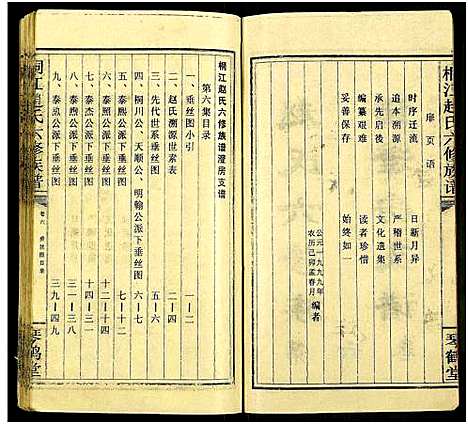 桐江赵氏六修族谱
琴鹤堂
扉页语
时序迁流　日新月异
追本溯源　严稽世系
承先启後　文化遗集
编纂艰难　读者珍惜
妥善保存　始终如一
公元一九九九年
农历己卯孟春月　编者
桐江赵氏六修族谱澄房支谱
第六集目录
一、垂丝图小引　一—二
二、赵氏溯源世索表　三—四
三、先代世系垂丝图　五—六
四、桐川公、天顺公、明翰公派下垂丝图　六—七
五、泰然公派下垂丝图　七—十二
六、泰杰公派下垂丝图　十—十一
七、泰焦公派下垂丝图　十四—三一
八、泰煦公派下垂丝图　三二—三九
九、泰照公派下垂丝图　三九—四九
桐江赵氏六修族谱
卷六
琴鹤堂